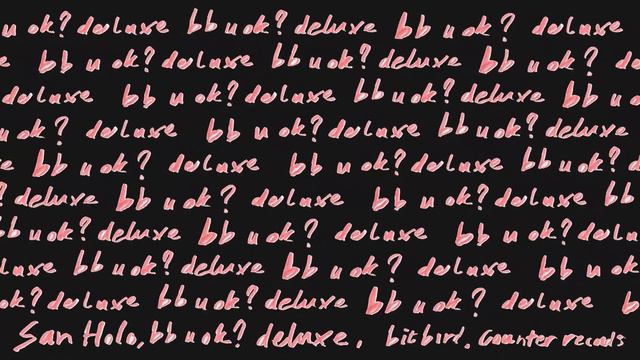 u ok? deluxe bb u ok? deluxe bb u ok? deluxe
e bb u ok? deluxe bb u ok? deluxe bb u ok? de
deluxe bb u ok? deluxe bb u ok? deluxe bb u
u ok? deluxe bb u ok? deluxe bb u ok? deluxe
e bb u ok? deluxe bb u ok? deluxe bb u ok? d
? deluxe bb u ok? deluxe bb u ok? deluxe bb
bb u ok? deluxe bb u ok? deluxe bb u ok? delux
luxe bb u ok? deluxe bb u ok? deluxe bb u ok
ok? deluxe bb u ok? deluxe bb u ok? deluxe b
San Holo, bb u ok? deluxe, bitbird, Counter records